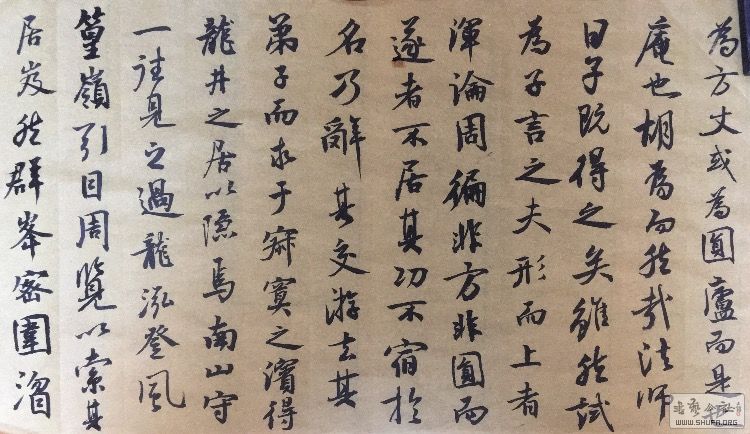 為方丈或為圓廬而是
庵也胡為而然哉法師
曰子既得之矣雖然試
為子言之夫形而上者
渾淪周徧非方非圓而
遂者不居其功不宿於
名乃辭其交游去其
弟子而求于寂寞之濱得
龍井之居以隱焉南山守
一訪見之過龍泓登風
篁嶺引目周覽以索其
居岌然群峯密圍溜
WWW.SHUFA.ORG